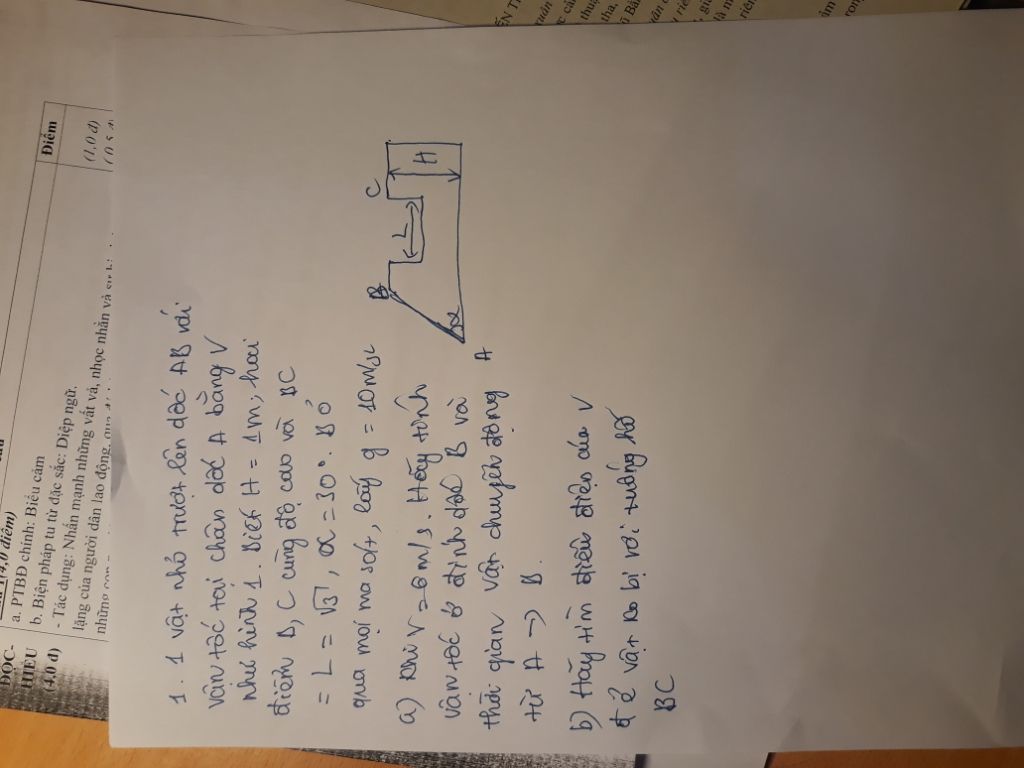 1. 1 vật nhỏ trượt lên dốc AB với
vận tốc tại chân dốc A bằng V
như hình 1. Biết H = 1m, hai
điểm B, C cùng độ cao và BC
= L = √3, α = 30°. Bỏ
qua mọi ma sát, lấy g = 10m/s²
a) Khi V = 6m/s. Hãy tính
vận tốc ở đỉnh dốc B và
thời gian vật chuyển động
từ A → B.
b) Hãy tìm điều điện của V
để vật ko bị rơi xuống hố
BC
B
C
L
H
α
A
Điểm
(1,0 đ)
ĐỌC-
HIỂU
(4.0 đ)
a. PTBĐ chính: Biểu cảm
b. Biện pháp tu từ đặc sắc: Điệp ngữ.
- Tác dụng: Nhấn mạnh những vất vả, nhọc nhằn và
lặng của người dân lao động,